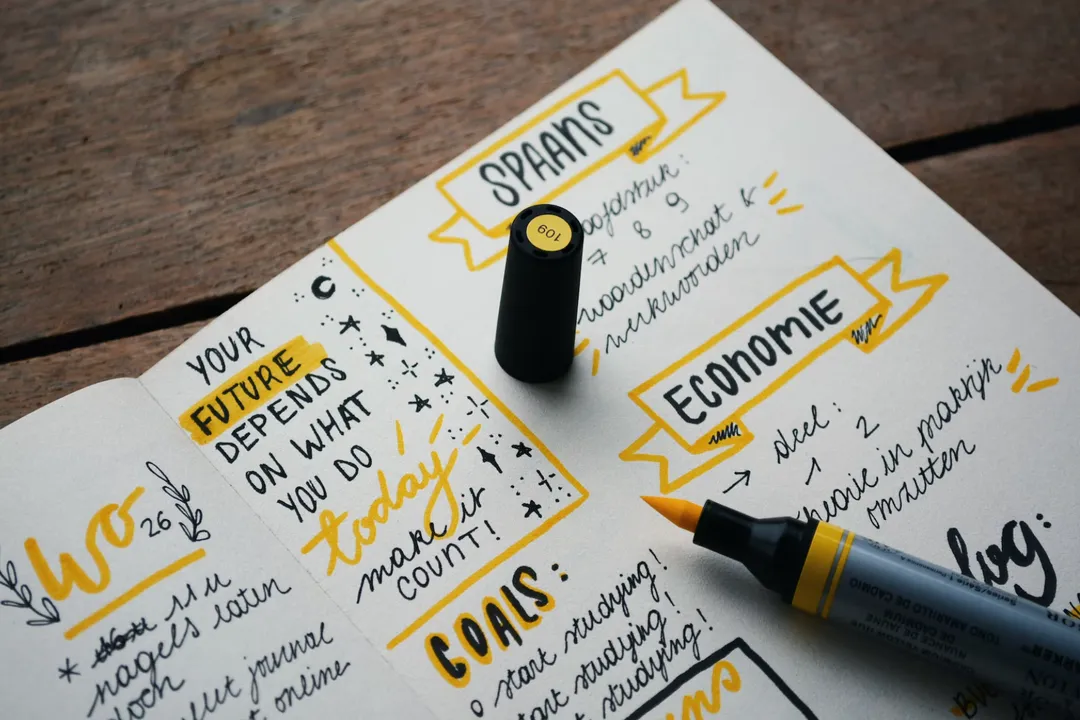 Wo
26
11u
nagels laten
journal
online
YOUR
FUTURE
DEPENDS
ON WHAT
YOU DO
today
make it
COUNT!
GOALS:
o start studying!
start studying!
studying!
SPAANS
7 8 9
woordenschat &
werkwoorden
109
ECONOMIE
→ deel:
1 2
in praktijk
omzetten
log:
TONO AMARILLO DE CADMIO